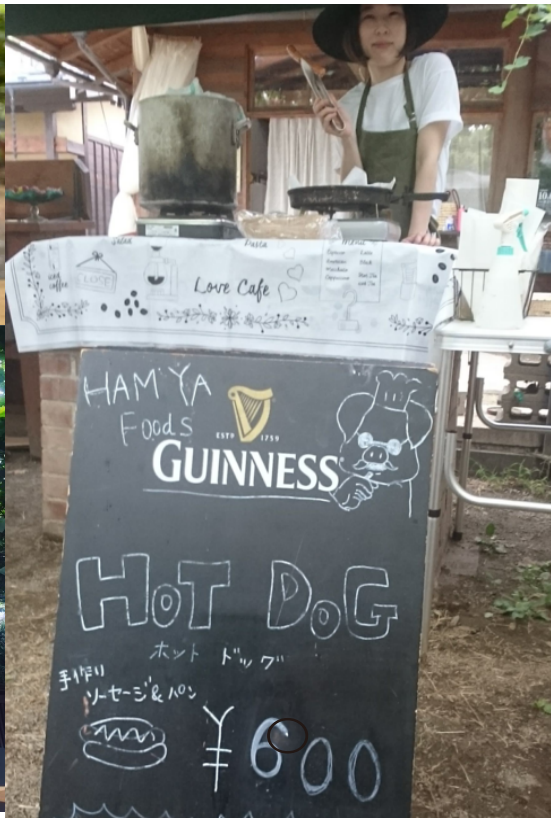 Love Cafe
HAM YA
Foods
ESTD 1759
GUINNESS
HOT DOG
ホット ドッグ
手作り
ソーセージ&パン
¥600